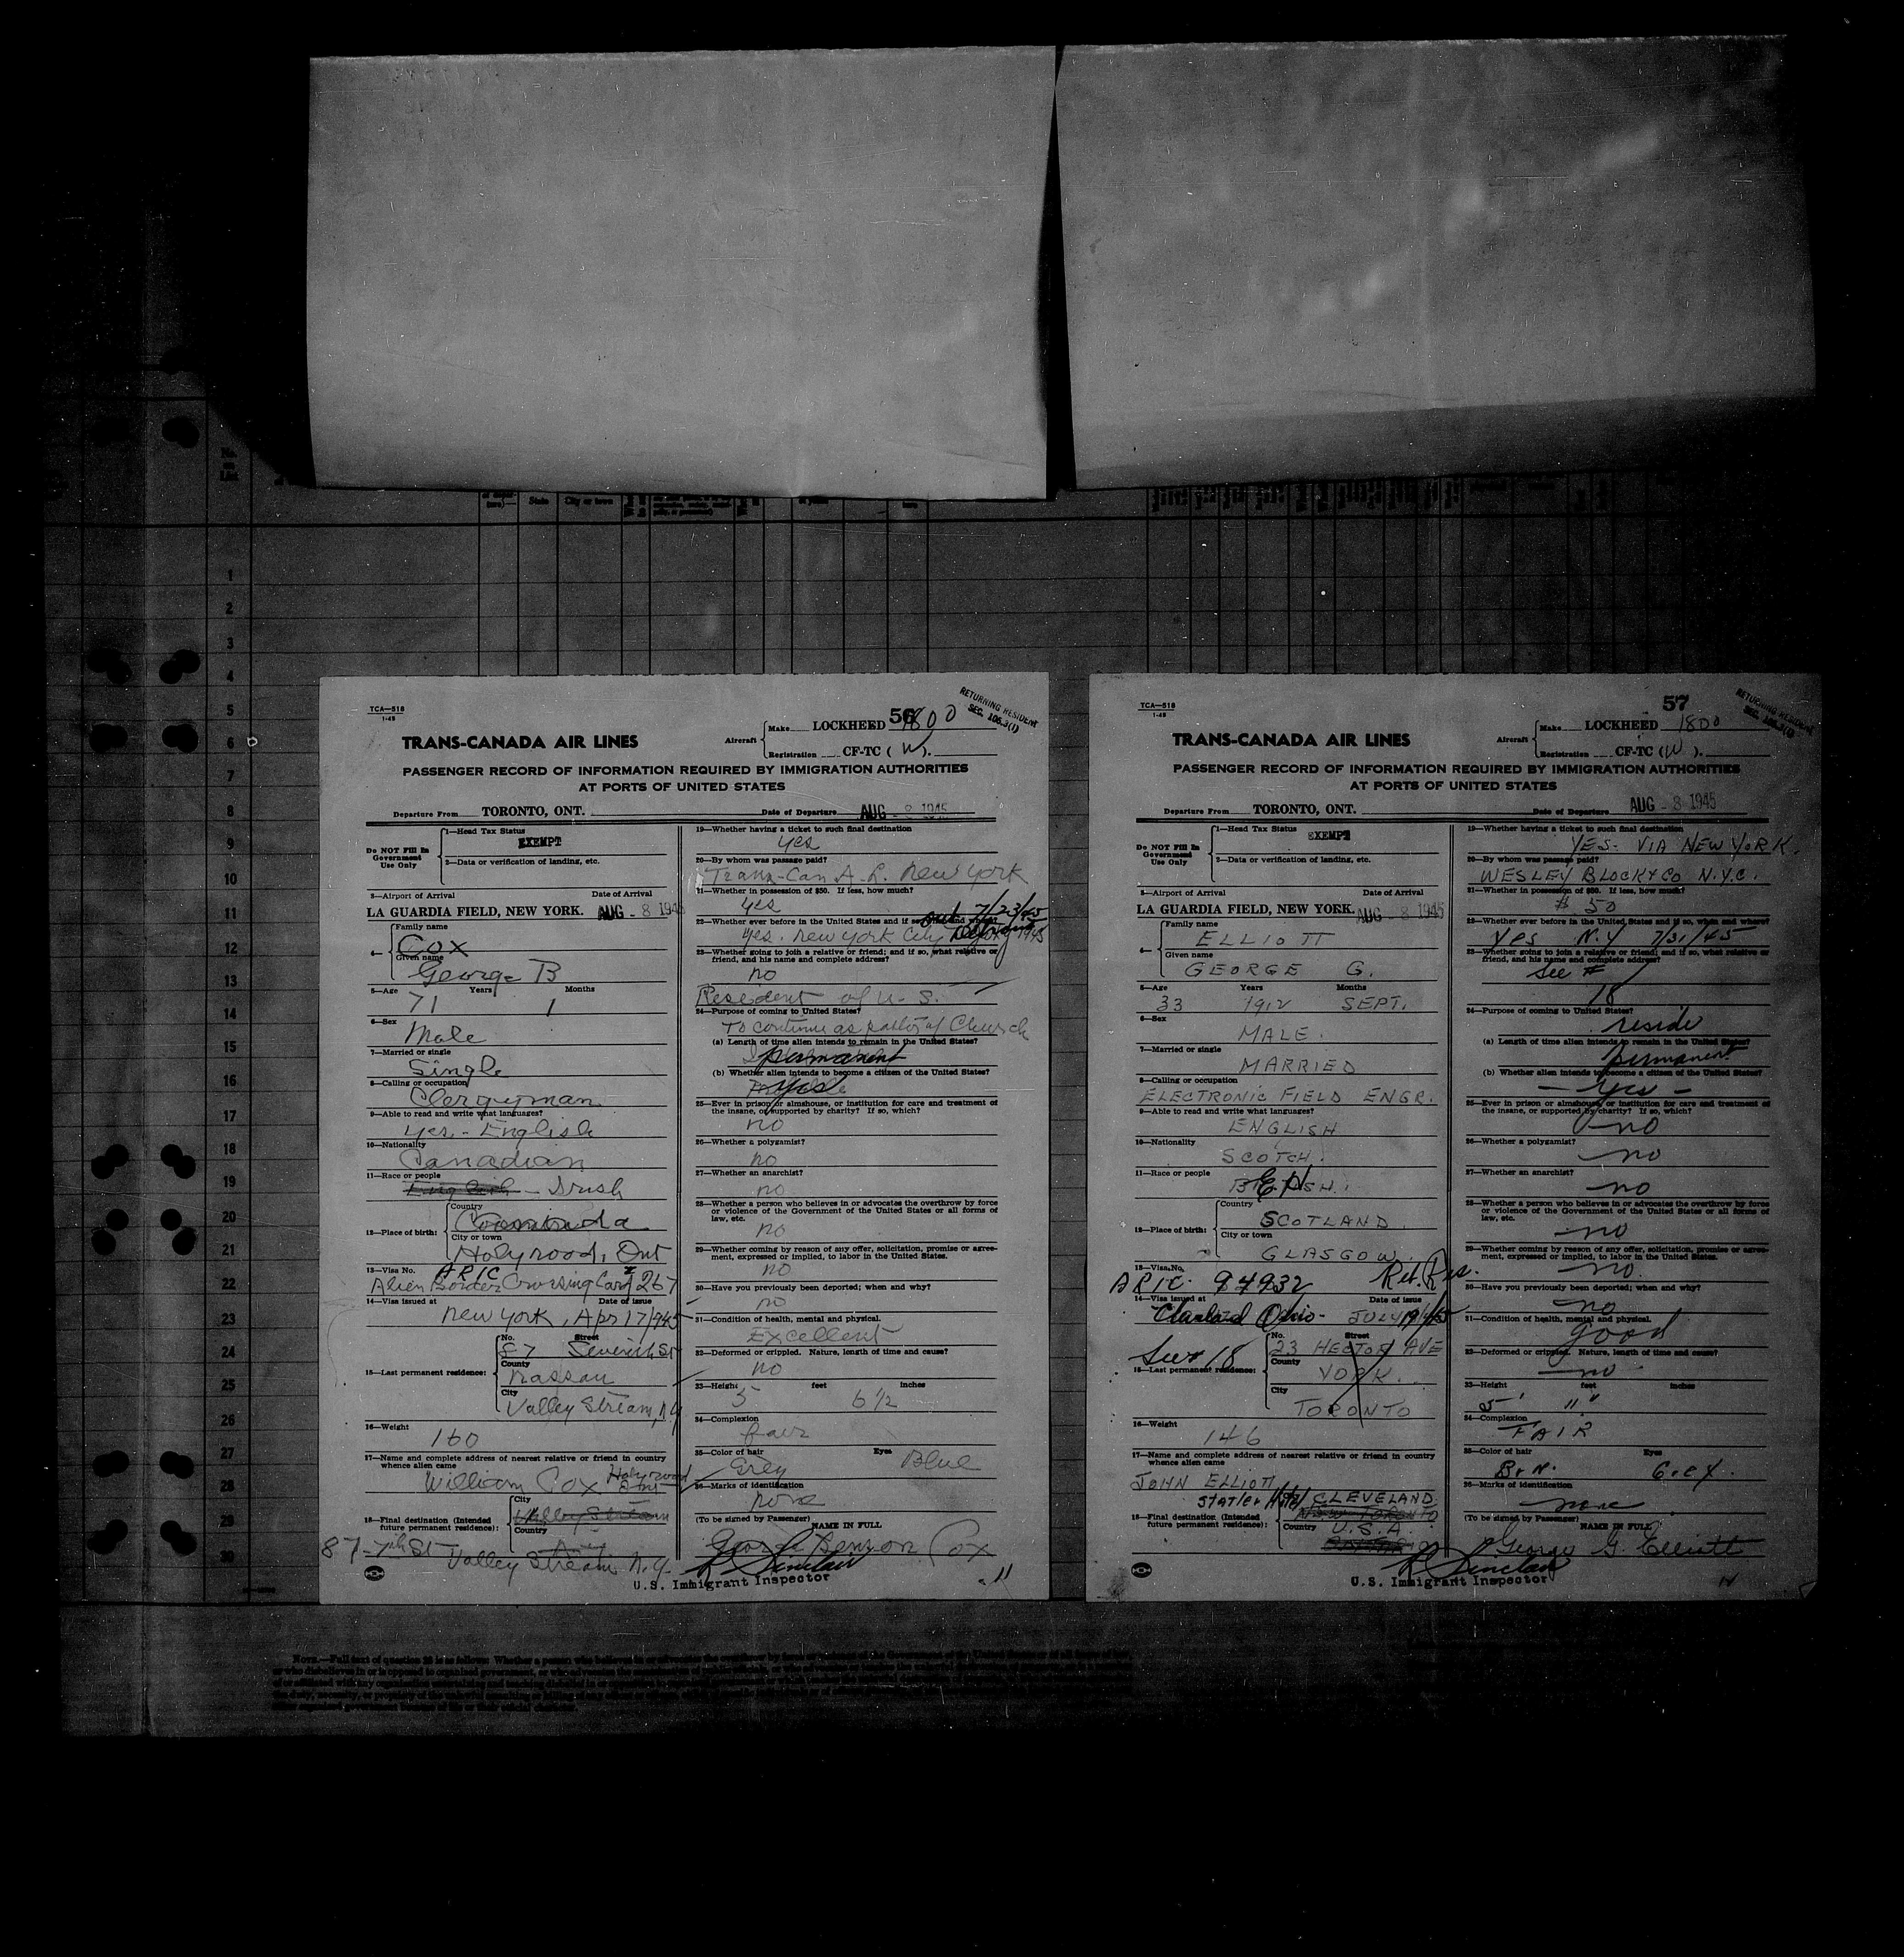 State
City or town
1
2
3
4
5
6
7
8
9
10
11
12
13
14
15
16
17
18
19
20
21
22
23
24
25
26
27
28
29
30
TCA—518
1-45
56
RETURNING RESIDENT
SEC. 106.3(f)
TRANS-CANADA AIR LINES
Aircraft
Make LOCKHEED 1800
Registration CF-TC ( W ).
PASSENGER RECORD OF INFORMATION REQUIRED BY IMMIGRATION AUTHORITIES
AT PORTS OF UNITED STATES
Departure From TORONTO, ONT. Date of Departure AUG - 8 1945
Do NOT Fill In
Government
Use Only
1—Head Tax Status
EXEMPT
2—Data or verification of landing, etc.
3—Airport of Arrival Date of Arrival
LA GUARDIA FIELD, NEW YORK. AUG - 8 1945
4—
Family name
Cox
Given name
George B
5—Age Years Months
71 1
6—Sex
Male
7—Married or single
Single
8—Calling or occupation
Clergyman
9—Able to read and write what languages?
yes - English
10—Nationality
Canadian
11—Race or people
Irish
12—Place of birth:
Country
Canada
City or town
Holyrood, Ont
13—Visa No. ARIC
Alien Border Crossing Card 267
14—Visa issued at Date of issue
New York, Apr 17/945
15—Last permanent residence:
No. Street
87 Seventh St
County
Nassau
City
Valley Stream, N.Y
16—Weight
160
17—Name and complete address of nearest relative or friend in country
whence alien came
William Cox Holyrood
Ont
18—Final destination (Intended
future permanent residence):
City
Valley Stream
Country
87-7th St Valley Stream N.Y.
19—Whether having a ticket to such final destination
yes
20—By whom was passage paid?
Trans-Can A-L. New York
21—Whether in possession of $50. If less, how much?
yes
22—Whether ever before in the United States and if so, when and where?
out 7/23/45
yes. New York City 1945
23—Whether going to join a relative or friend; and if so, what relative or
friend, and his name and complete address?
no
Resident of U-S.
24—Purpose of coming to United States?
To continue as pastor of Church
(a) Length of time alien intends to remain in the United States?
permanent
(b) Whether alien intends to become a citizen of the United States?
yes
25—Ever in prison or almshouse, or institution for care and treatment of
the insane, or supported by charity? If so, which?
no
26—Whether a polygamist?
no
27—Whether an anarchist?
no
28—Whether a person who believes in or advocates the overthrow by force
or violence of the Government of the United States or all forms of
law, etc.
no
29—Whether coming by reason of any offer, solicitation, promise or agree-
ment, expressed or implied, to labor in the United States.
no
30—Have you previously been deported; when and why?
no
31—Condition of health, mental and physical.
Excellent
32—Deformed or crippled. Nature, length of time and cause?
no
33—Height feet inches
5 6 1/2
34—Complexion
fair
35—Color of hair Eyes
Grey Blue
36—Marks of identification
none
(To be signed by Passenger)
NAME IN FULL
George Benson Cox
R Sinclair
U.S. Immigrant Inspector
11
TCA—518
1-45
57
RETURNING RESIDENT
SEC. 106.3(f)
TRANS-CANADA AIR LINES
Aircraft
Make LOCKHEED 1800
Registration CF-TC (W ).
PASSENGER RECORD OF INFORMATION REQUIRED BY IMMIGRATION AUTHORITIES
AT PORTS OF UNITED STATES
Departure From TORONTO, ONT. Date of Departure AUG - 8 1945
Do NOT Fill In
Government
Use Only
1—Head Tax Status
EXEMPT
2—Data or verification of landing, etc.
3—Airport of Arrival Date of Arrival
LA GUARDIA FIELD, NEW YORK. AUG - 8 1945
4—
Family name
ELLIOTT
Given name
GEORGE G.
5—Age Years Months
33 1912 SEPT.
6—Sex
MALE.
7—Married or single
MARRIED
8—Calling or occupation
ELECTRONIC FIELD ENGR.
9—Able to read and write what languages?
ENGLISH
10—Nationality
SCOTCH.
11—Race or people
12—Place of birth:
Country
SCOTLAND.
City or town
GLASGOW.
13—Visa No. Ret. Res.
ARIC. 94932
14—Visa issued at Date of issue
Cleveland Ohio - JULY 19/45
See # 18
15—Last permanent residence:
No. Street
23 HECTOR AVE
County
YORK.
City
TORONTO
16—Weight
146
17—Name and complete address of nearest relative or friend in country
whence alien came
JOHN ELLIOTT
18—Final destination (Intended
future permanent residence):
City
Statler Hotel CLEVELAND
NEW TORONTO
Country
U.S.A.
19—Whether having a ticket to such final destination
YES - VIA NEW YORK.
20—By whom was passage paid?
WESLEY BLOCK & CO N.Y.C.
21—Whether in possession of $50. If less, how much?
$ 50
22—Whether ever before in the United States and if so, when and where?
yes N.Y 7/31/45
23—Whether going to join a relative or friend; and if so, what relative or
friend, and his name and complete address?
See #
18
24—Purpose of coming to United States?
reside
(a) Length of time alien intends to remain in the United States?
permanent
(b) Whether alien intends to become a citizen of the United States?
- yes -
25—Ever in prison or almshouse, or institution for care and treatment of
the insane, or supported by charity? If so, which?
no
26—Whether a polygamist?
no
27—Whether an anarchist?
no
28—Whether a person who believes in or advocates the overthrow by force
or violence of the Government of the United States or all forms of
law, etc.
no
29—Whether coming by reason of any offer, solicitation, promise or agree-
ment, expressed or implied, to labor in the United States.
no.
30—Have you previously been deported; when and why?
no
31—Condition of health, mental and physical.
good
32—Deformed or crippled. Nature, length of time and cause?
no
33—Height feet inches
5' 11"
34—Complexion
FAIR
35—Color of hair Eyes
Brn.
36—Marks of identification
none
(To be signed by Passenger)
NAME IN FULL
George G. Elliott
R Sinclair
U.S. Immigrant Inspector
NOTE.—Full text of question 28 is as follows: Whether a person who believes in or advocates the overthrow by force or violence of the Government of the United States